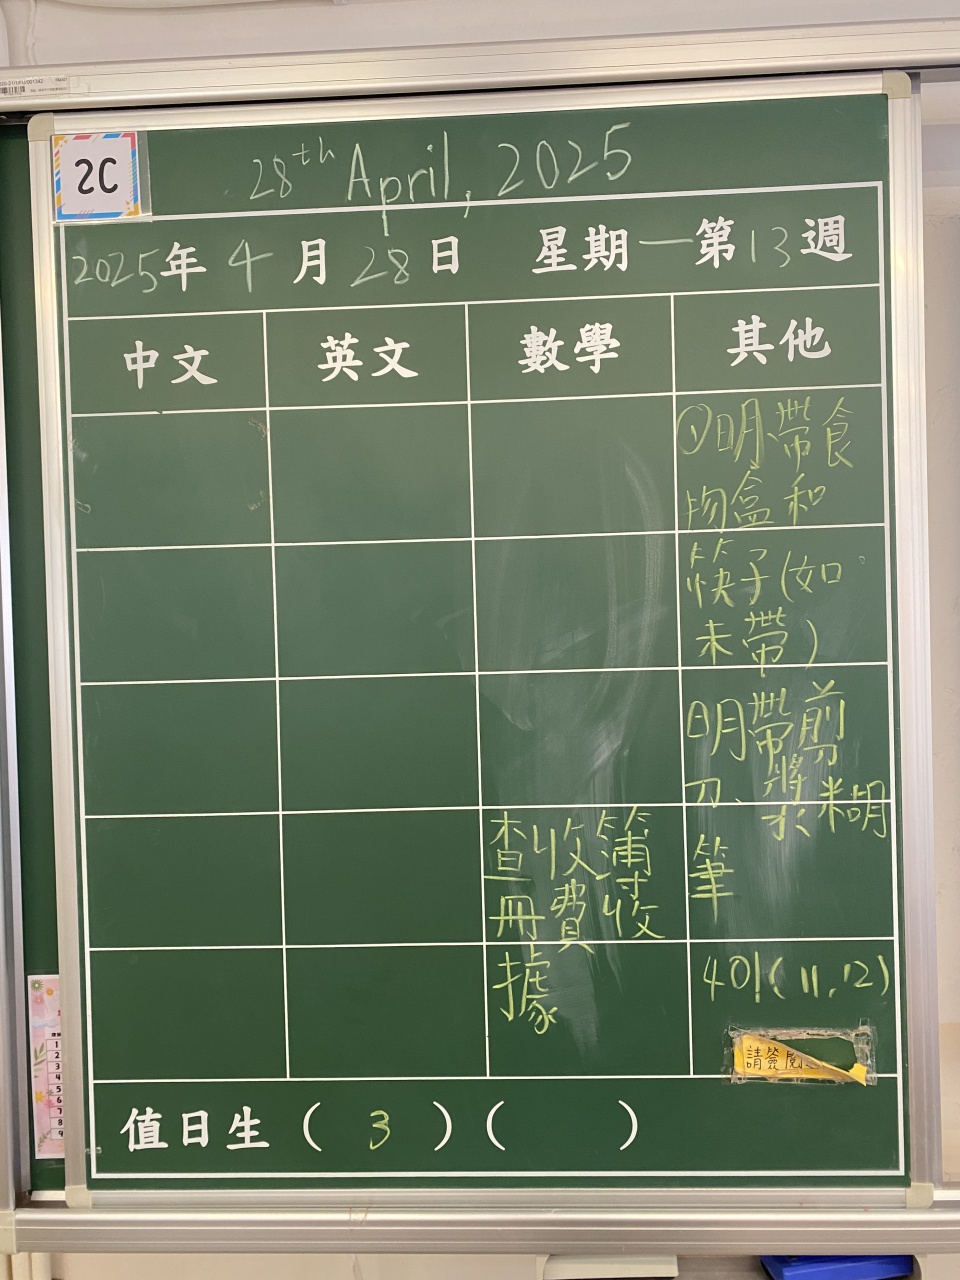 2C
28th April, 2025
2025年4月28日 星期一第13週
中文 英文 數學 其他
①明帶食
物盒和
筷子(如
未帶)
明帶剪
刀、漿糊
筆
查收簿
冊費收
據
401(11,12)
請簽閱
值日生 ( 3 ) ( )
1
2
3
4
5
6
7
8
9